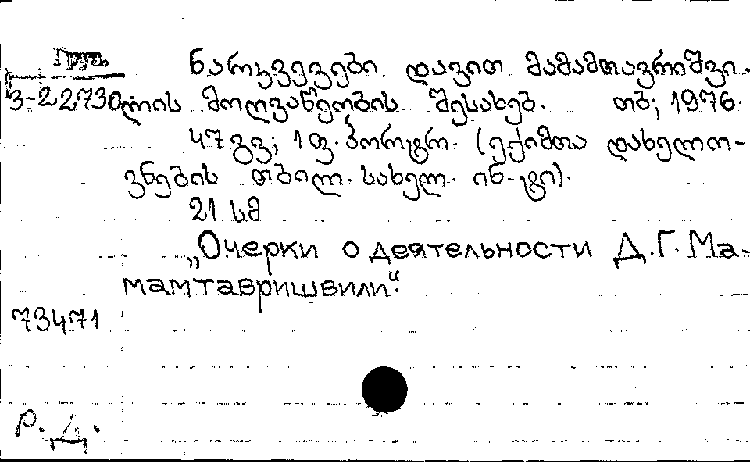 Груз.
3-22730
ნარკვევები დავით მამამთავრიშვი-
ლის მოღვაწეობის შესახებ. თბ; 1976.
47 გვ; 1 ფ. პორტრ. (ექიმთა დახელო-
ვნების თბილ. სახელ. ინ-ტი).
21 სმ
„Очерки о деятельности Д.Г. Ма-
мамтавришвили“.
73471
Р. Д.